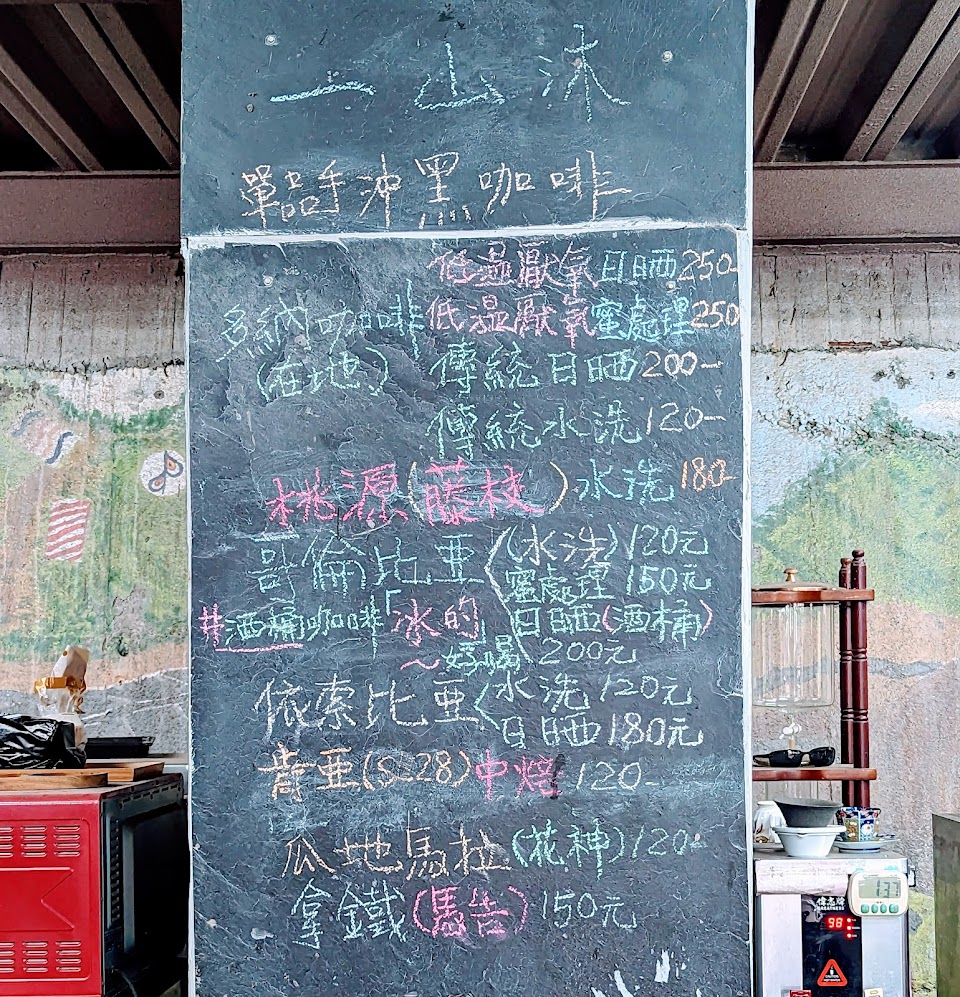 一山沐
單品手沖黑咖啡
低溫厭氧日晒250-
多納咖啡低溫厭氧蜜處理250
(在地)傳統日晒200-
傳統水洗120-
桃源(藤枝)水洗180-
哥倫比亞(水洗)120元
蜜處理150元
#酒桶咖啡「冰的」日晒(酒桶)
～好喝200元
依索比亞水洗120元
日晒180元
肯亞(S-28)中焙120-
瓜地馬拉(花神)120-
拿鐵(馬告)150元
137
98